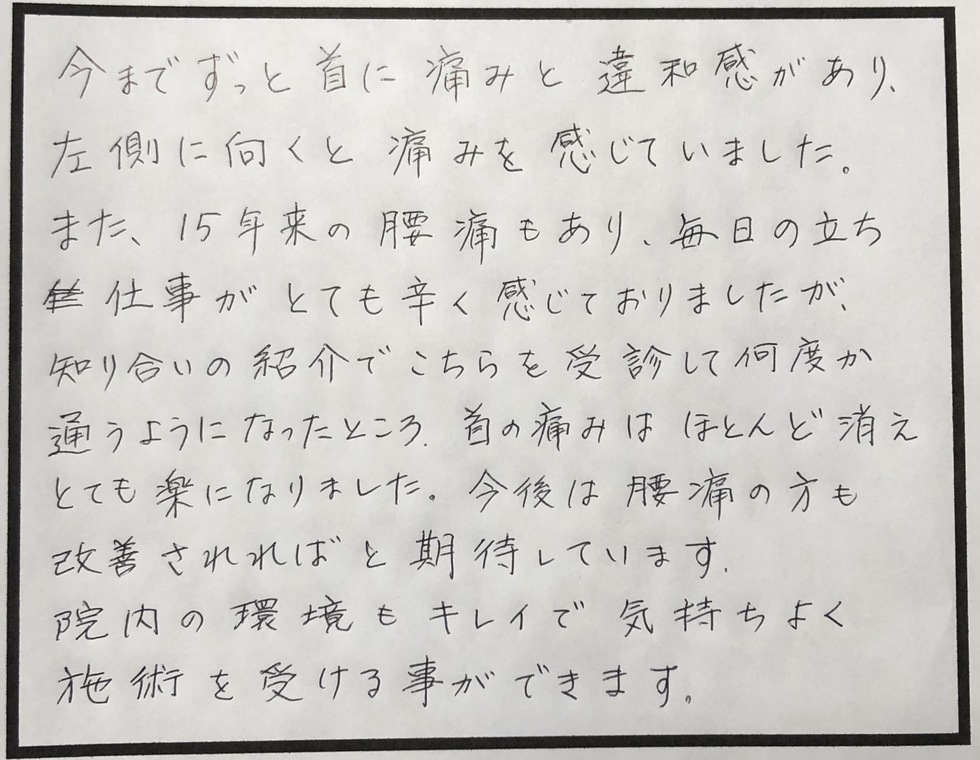 今までずっと首に痛みと違和感があり、
左側に向くと痛みを感じていました。
また、15年来の腰痛もあり、毎日の立ち
仕事がとても辛く感じておりましたが、
知り合いの紹介でこちらを受診して何度か
通うようになったところ、首の痛みはほとんど消え
とても楽になりました。今後は腰痛の方も
改善されればと期待しています。
院内の環境もキレイで気持ちよく
施術を受ける事ができます。